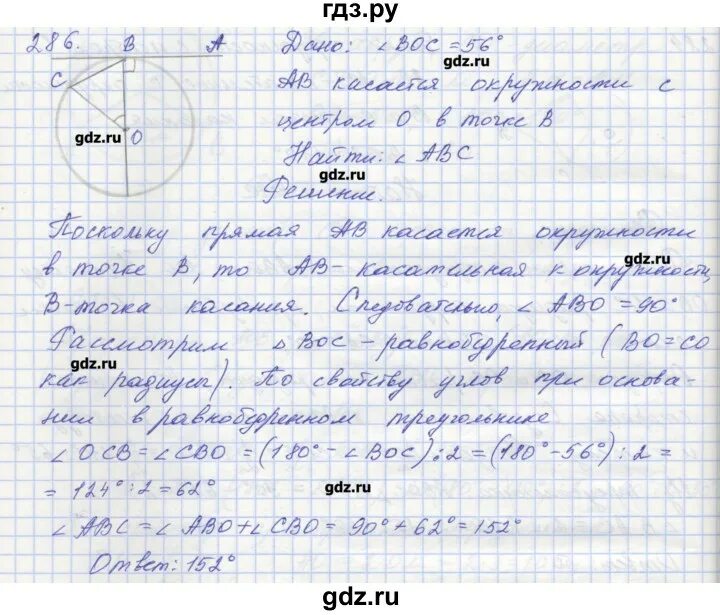 гдз.ру
286. B A Дано: ∠BOC = 56°
gdz.ru
C AB касается окружности с
gdz.ru O центром O в точке B
Найти: ∠ABC
gdz.ru
Решение.
Поскольку прямая AB касается окружности
в точке B, то AB - касательная к окружности,
gdz.ru
B - точка касания. Следовательно, ∠ABO = 90°
Рассмотрим △BOC - равнобедренный (BO = CO
gdz.ru
как радиусы). По свойству углов при основа-
нии в равнобедренном треугольнике
∠OCB = ∠CBO = (180° - ∠BOC) : 2 = (180° - 56°) : 2 =
= 124° : 2 = 62°
gdz.ru
∠ABC = ∠ABO + ∠CBO = 90° + 62° = 152°
Ответ: 152°
gdz.ru